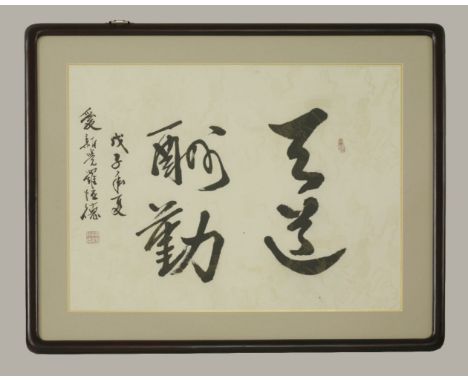 天道
酬勤
戊子年夏
愛新覺羅恒德